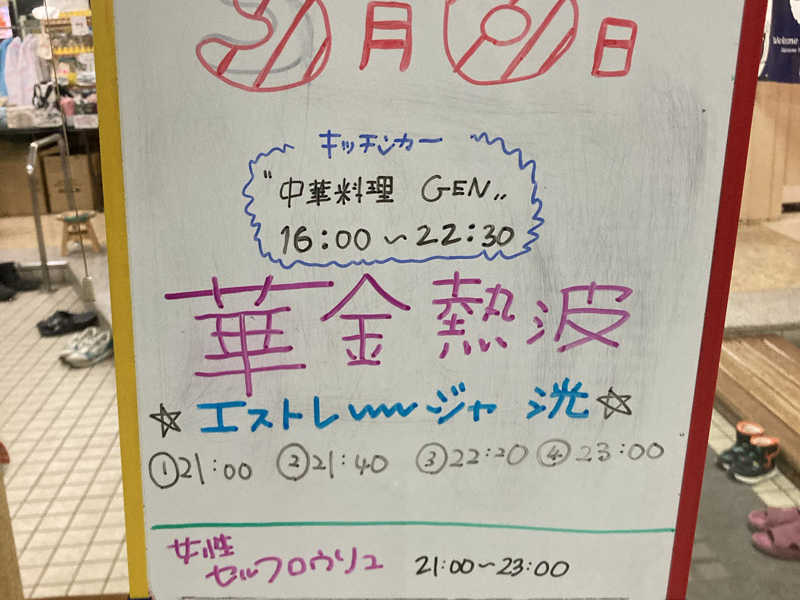 3月 日
キッチンカー
"中華料理 GEN"
16:00～22:30
華金熱波
☆エストレーーージャ 洸☆
①21:00 ②21:40 ③22:20 ④23:00
女性
セルフロウリュ 21:00～23:00
Welcome